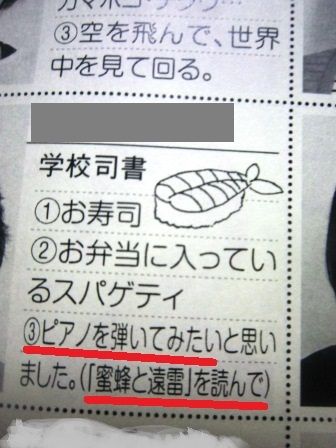 ③空を飛んで、世界
中を見て回る。
学校司書
①お寿司
②お弁当に入ってい
るスパゲティ
③ピアノを弾いてみたいと思い
ました。(「蜜蜂と遠雷」を読んで)